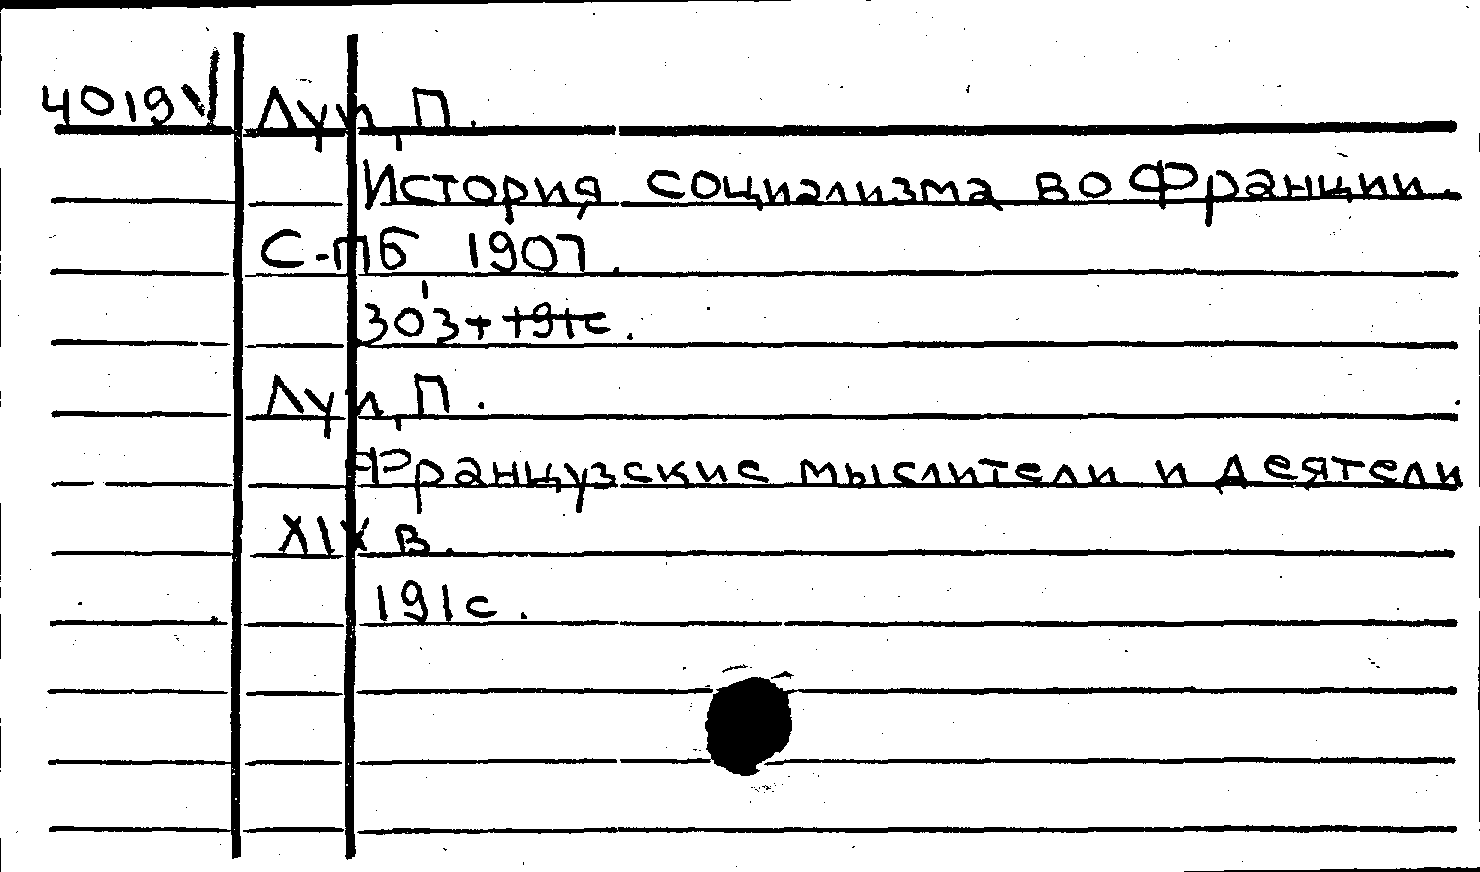 4019 V Луи, П.
История социализма во Франции.
С-Пб 1907.
303+ 191с.
Луи, П.
Французские мыслители и деятели
XIX в.
191с.